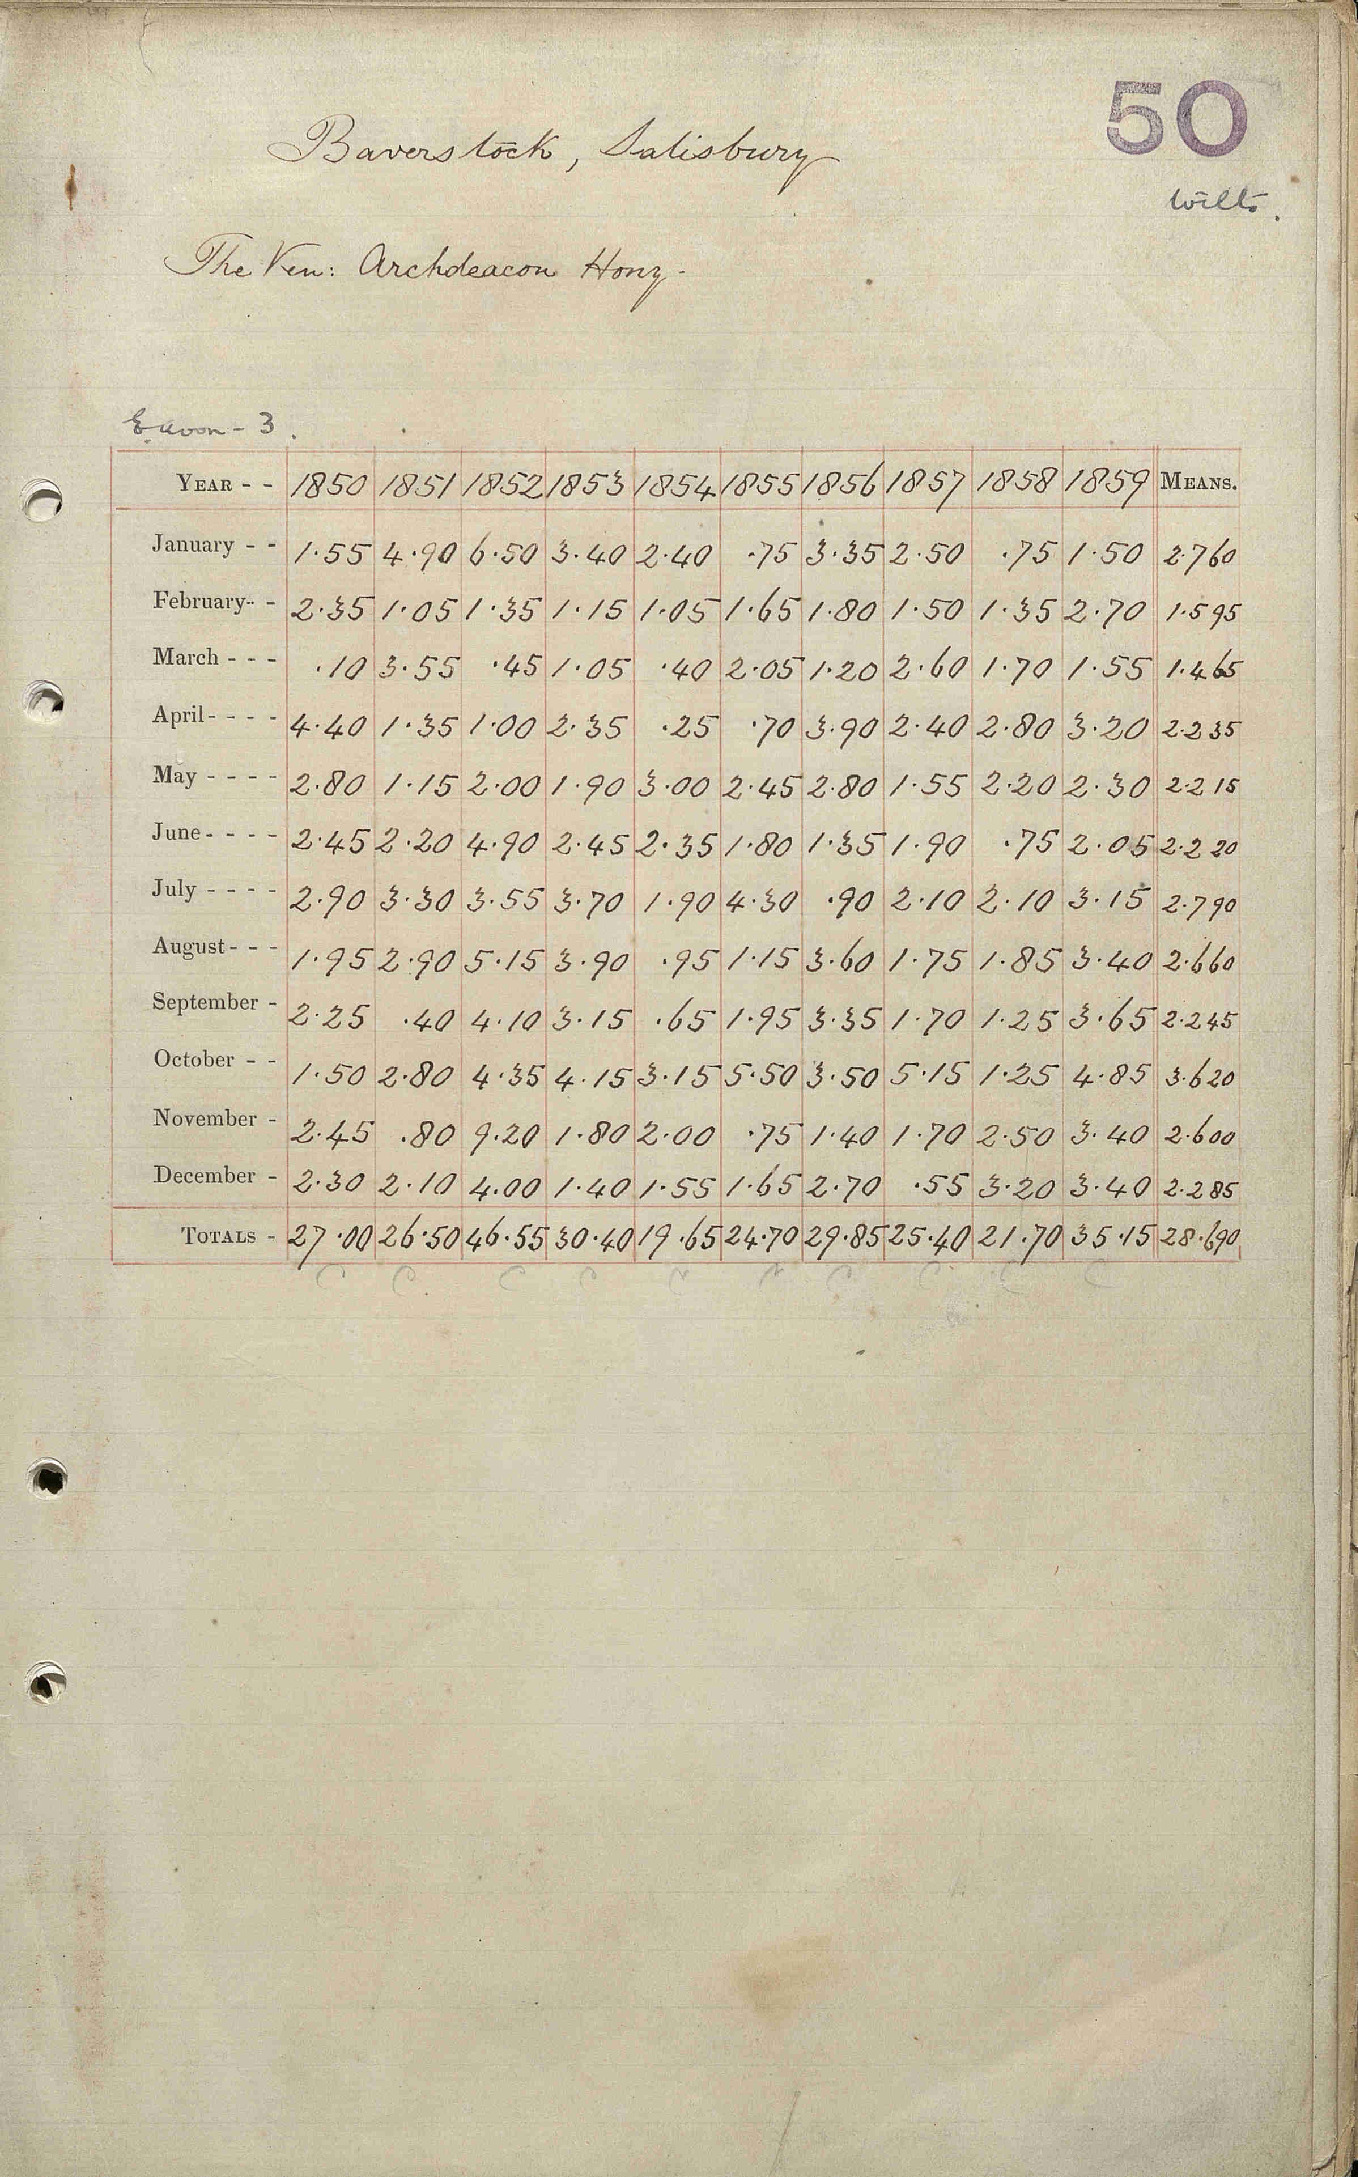 50
Baverstock, Salisbury
Wilts.
The Ven: Archdeacon Hony-
E. Avon - 3.
YEAR - - 1850 1851 1852 1853 1854 1855 1856 1857 1858 1859 MEANS.
January - - 1.55 4.90 6.50 3.40 2.40 .75 3.35 2.50 .75 1.50 2.760
February - - 2.35 1.05 1.35 1.15 1.05 1.65 1.80 1.50 1.35 2.70 1.595
March - - - .10 3.55 .45 1.05 .40 2.05 1.20 2.60 1.70 1.55 1.465
April - - - - 4.40 1.35 1.00 2.35 .25 .70 3.90 2.40 2.80 3.20 2.235
May - - - - 2.80 1.15 2.00 1.90 3.00 2.45 2.80 1.55 2.20 2.30 2.215
June - - - - 2.45 2.20 4.90 2.45 2.35 1.80 1.35 1.90 .75 2.05 2.220
July - - - - 2.90 3.30 3.55 3.70 1.90 4.30 .90 2.10 2.10 3.15 2.790
August - - - 1.95 2.90 5.15 3.90 .95 1.15 3.60 1.75 1.85 3.40 2.660
September - 2.25 .40 4.10 3.15 .65 1.95 3.35 1.70 1.25 3.65 2.245
October - - 1.50 2.80 4.35 4.15 3.15 5.50 3.50 5.15 1.25 4.85 3.620
November - 2.45 .80 9.20 1.80 2.00 .75 1.40 1.70 2.50 3.40 2.600
December - 2.30 2.10 4.00 1.40 1.55 1.65 2.70 .55 3.20 3.40 2.285
TOTALS - 27.00 26.50 46.55 30.40 19.65 24.70 29.85 25.40 21.70 35.15 28.690